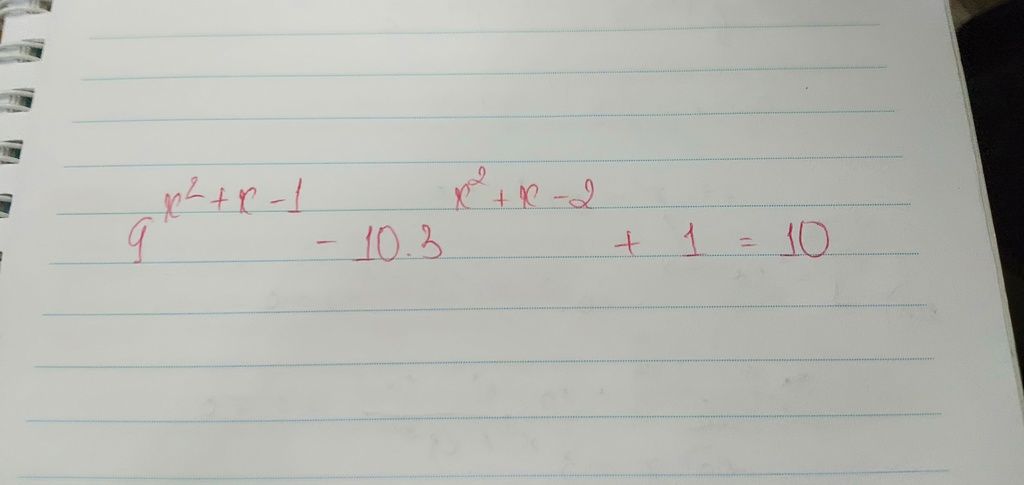 9^{x^2+x-1} - 10.3^{x^2+x-2} + 1 = 10